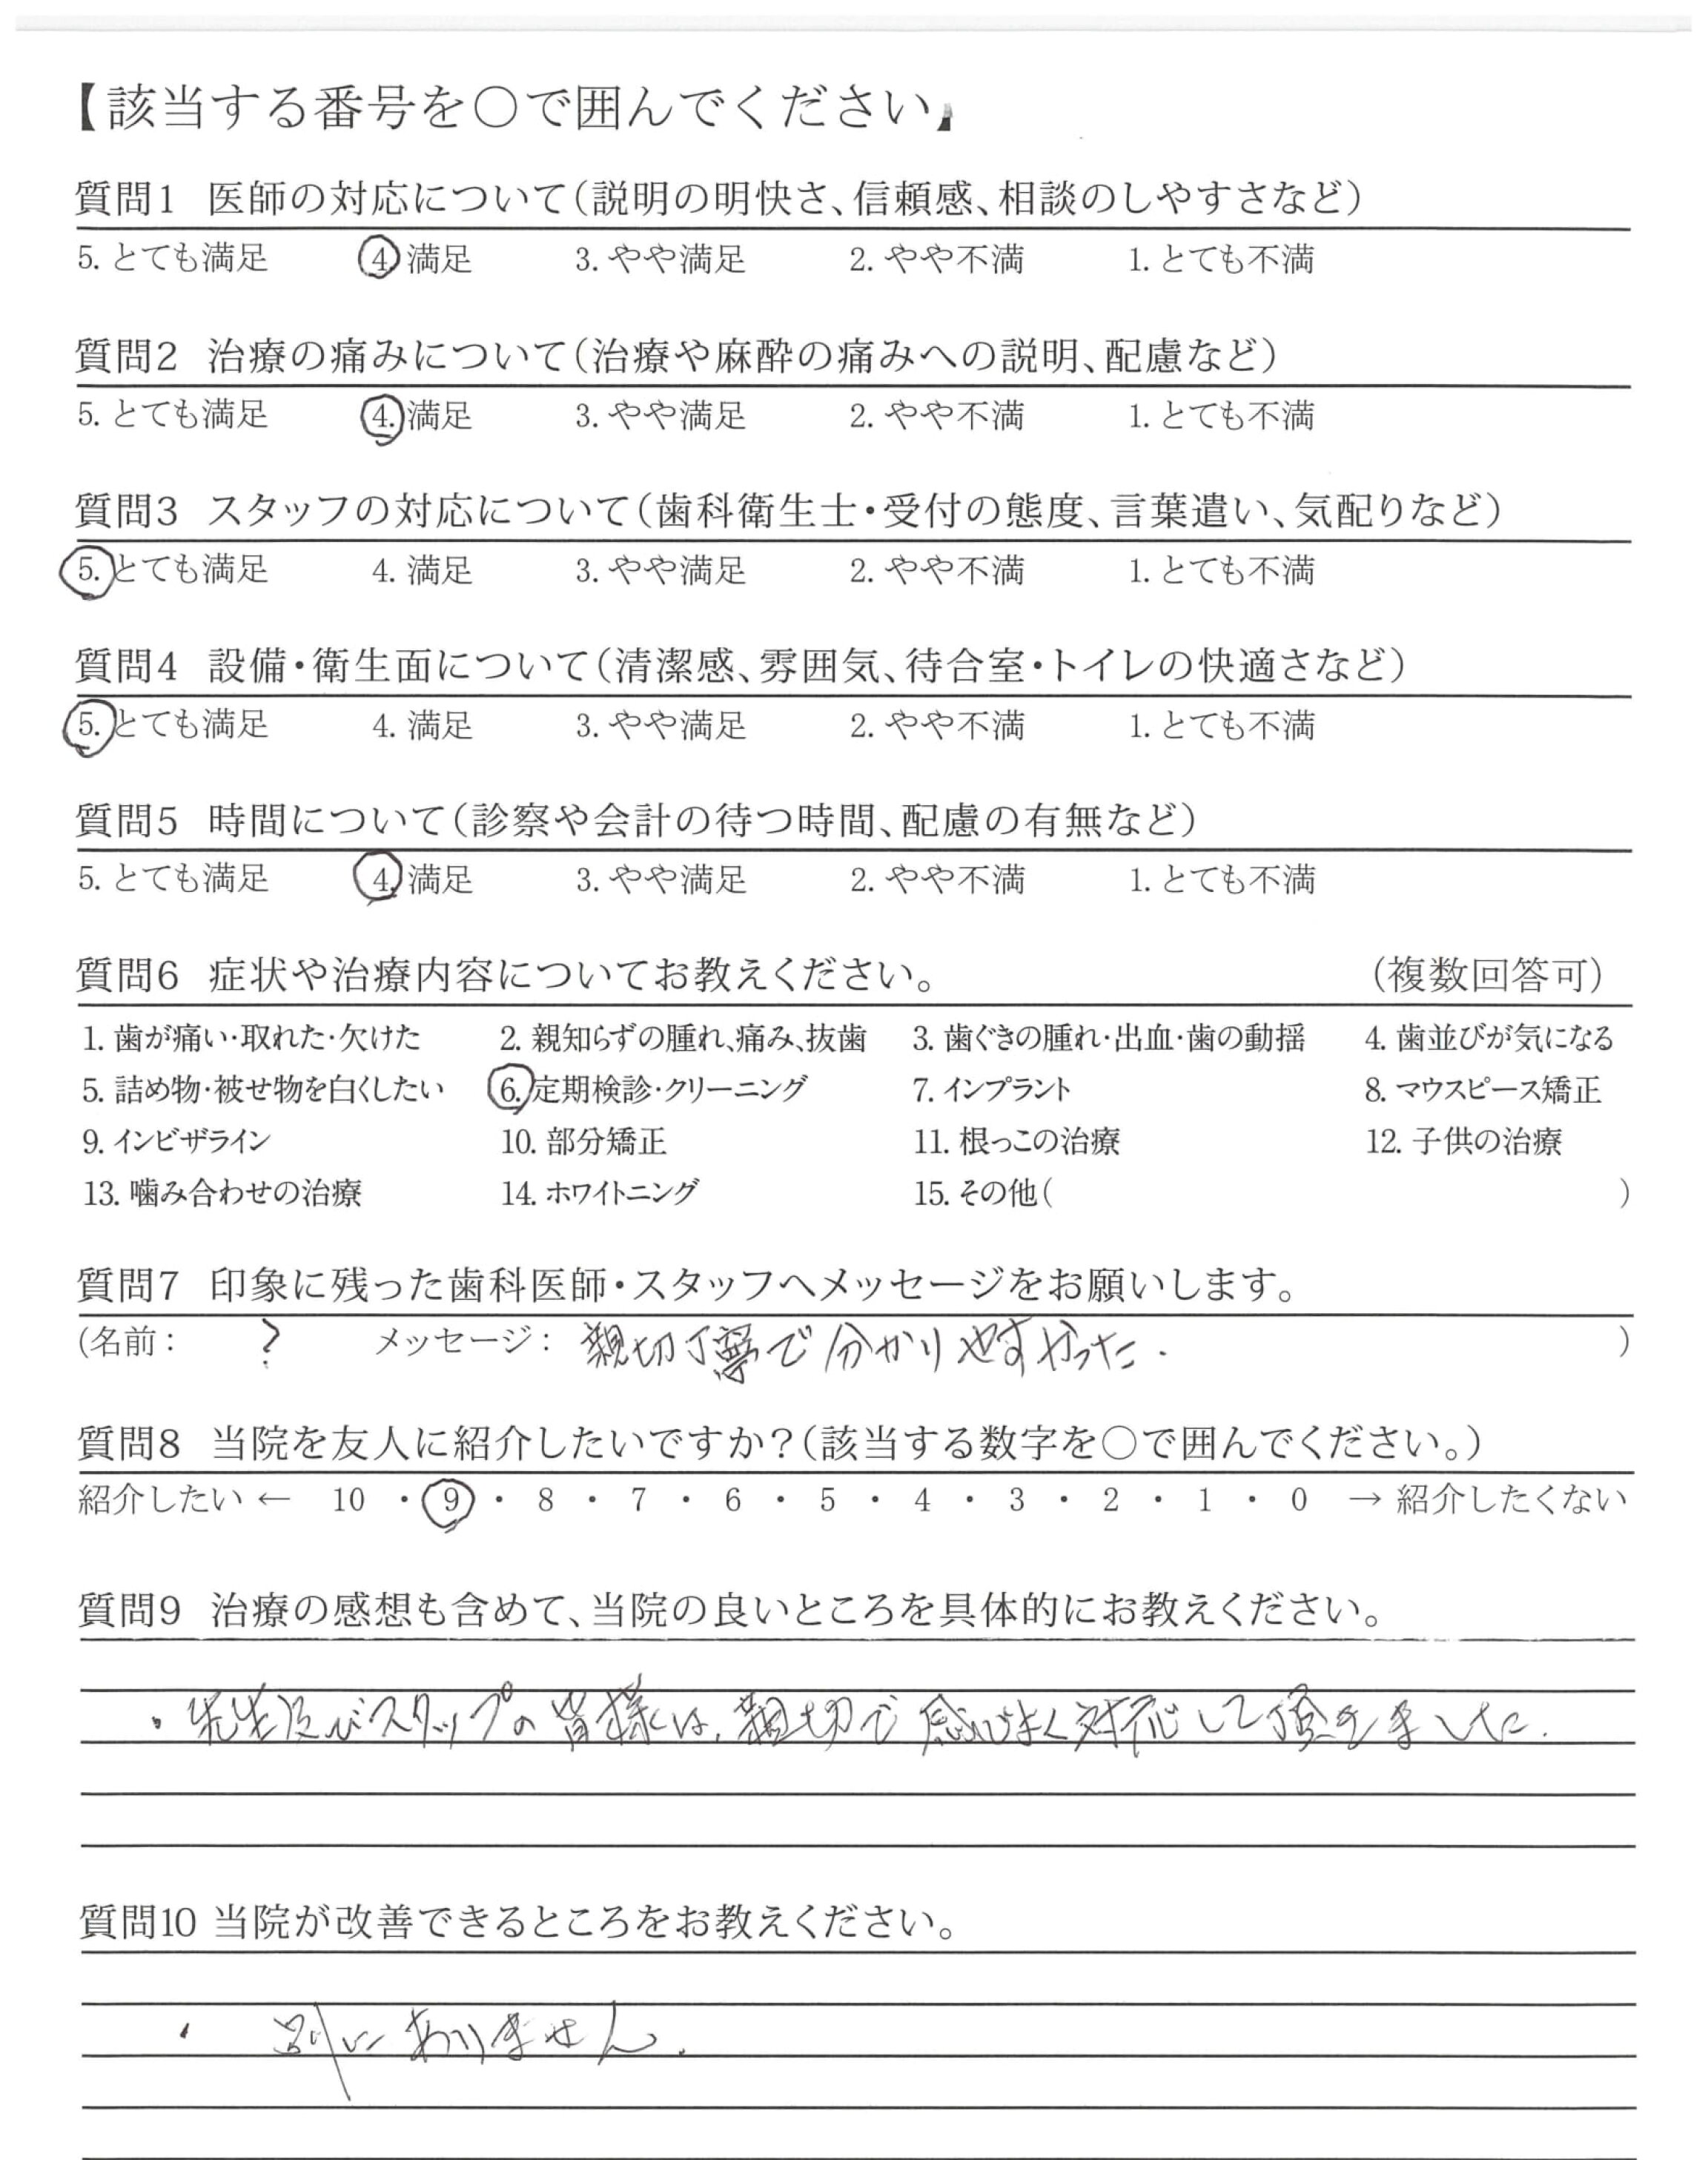 【該当する番号を○で囲んでください】
質問1 医師の対応について(説明の明快さ、信頼感、相談のしやすさなど)
5. とても満足 4. 満足 3. やや満足 2. やや不満 1. とても不満
質問2 治療の痛みについて(治療や麻酔の痛みへの説明、配慮など)
5. とても満足 4. 満足 3. やや満足 2. やや不満 1. とても不満
質問3 スタッフの対応について(歯科衛生士・受付の態度、言葉遣い、気配りなど)
5. とても満足 4. 満足 3. やや満足 2. やや不満 1. とても不満
質問4 設備・衛生面について(清潔感、雰囲気、待合室・トイレの快適さなど)
5. とても満足 4. 満足 3. やや満足 2. やや不満 1. とても不満
質問5 時間について(診察や会計の待つ時間、配慮の有無など)
5. とても満足 4. 満足 3. やや満足 2. やや不満 1. とても不満
質問6 症状や治療内容についてお教えください。 (複数回答可)
1. 歯が痛い・取れた・欠けた 2. 親知らずの腫れ、痛み、抜歯 3. 歯ぐきの腫れ・出血・歯の動揺 4. 歯並びが気になる
5. 詰め物・被せ物を白くしたい 6. 定期検診・クリーニング 7. インプラント 8. マウスピース矯正
9. インビザライン 10. 部分矯正 11. 根っこの治療 12. 子供の治療
13. 噛み合わせの治療 14. ホワイトニング 15. その他( )
質問7 印象に残った歯科医師・スタッフへメッセージをお願いします。
(名前: ? メッセージ: 親切丁寧で分かりやすかった. )
質問8 当院を友人に紹介したいですか?(該当する数字を○で囲んでください。)
紹介したい ← 10 ・ 9 ・ 8 ・ 7 ・ 6 ・ 5 ・ 4 ・ 3 ・ 2 ・ 1 ・ 0 → 紹介したくない
質問9 治療の感想も含めて、当院の良いところを具体的にお教えください。
・先生及びスタッフの皆様は、親切で感じよく対応して頂きました.
質問10 当院が改善できるところをお教えください。
・ 別にありません.